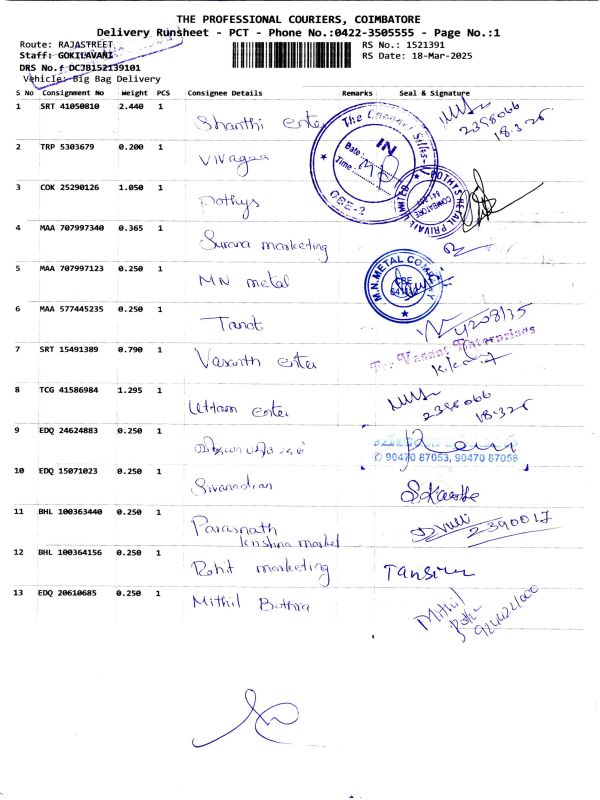 THE PROFESSIONAL COURIERS, COIMBATORE
Delivery Runsheet - PCT - Phone No.:0422-3505555 - Page No.:1
Route: RAJASTREET
RS No.: 1521391
Staff: GOKILAVANI
RS Date: 18-Mar-2025
DRS No.: DCJB152139101
Vehicle: Big Bag Delivery
S No Consignment No Weight PCS Consignee Details Remarks Seal & Signature
1 SRT 41050810 2.440 1 Shanthi enter
2398066
18.3.25
IN
Date:
Time:
CBE-2
2 TRP 5303679 0.200 1
3 COK 25290126 1.050 1 Pothys
POTHYS RETAIL PRIVATE LIMITED
COIMBATORE
4 MAA 707997340 0.365 1 Surana marketing
5 MAA 707997123 0.250 1 MN metal
M.N.METAL COMPANY
CBE
6 MAA 577445235 0.250 1
7 SRT 15491389 0.790 1 Vasanth enter
For Vasant Enterprises
8 TCG 41586984 1.295 1 Uttam enter
2398066
18.3.25
9 EDQ 24624883 0.250 1
90470 87053, 90470 87058
10 EDQ 15071023 0.250 1
11 BHL 100363440 0.250 1 Parasnath
krishna market
2390017
12 BHL 100364156 0.250 1 Rohit marketing
13 EDQ 20610685 0.250 1 Mithil Bothra
Mithil